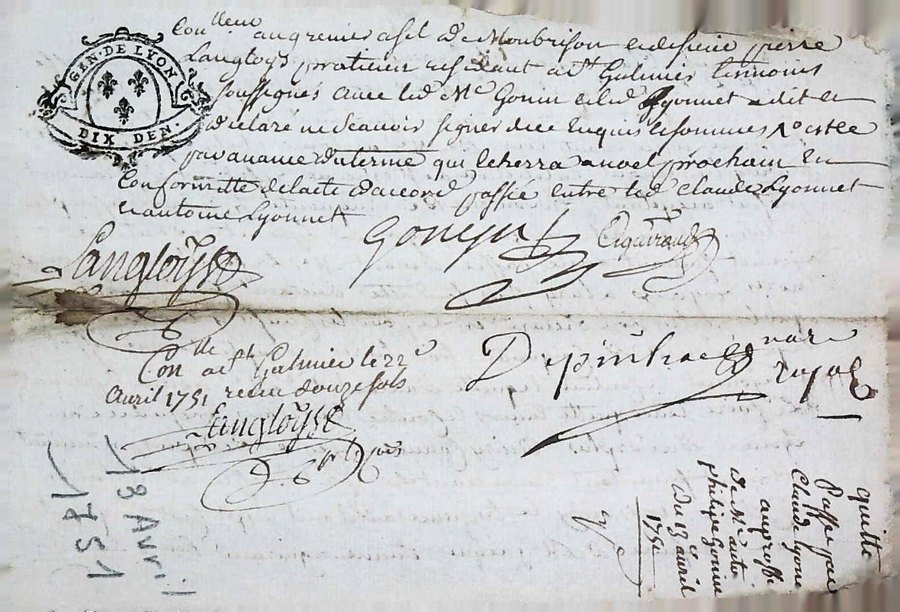 GEN. DE LYON
DIX DEN.
Con.lleur au grenier a sel de Monbrison et de sieur pierre
Langloys praticien residant a st Galmier temoins
soussignés avec led Me Gonin et led Lyonnet a dit et
declaré ne scavoir signer de ce enquis les sommes
par avance du terme qui echerra a noel prochain en
Conformitte de lacte daccord passé entre led claude Lyonnet
et antoine Lyonnet
Langloysse
Gonyn
Con.lle a st Galmier le 22e
Avril 1751 receu douze sols
Langloysse
Depinhac
notaire
royal
quitte
Passé par
Claude Lyone
au proffit
de Me
philipe Gonine
Du 13e avril
1751
13 Avril
1751